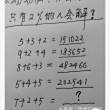 只有2%的人会解?
5+3+2 = 151022
9+2+4 = 183652
8+6+3 = 482466
5+4+5 = 202541
7+2+5 = ?